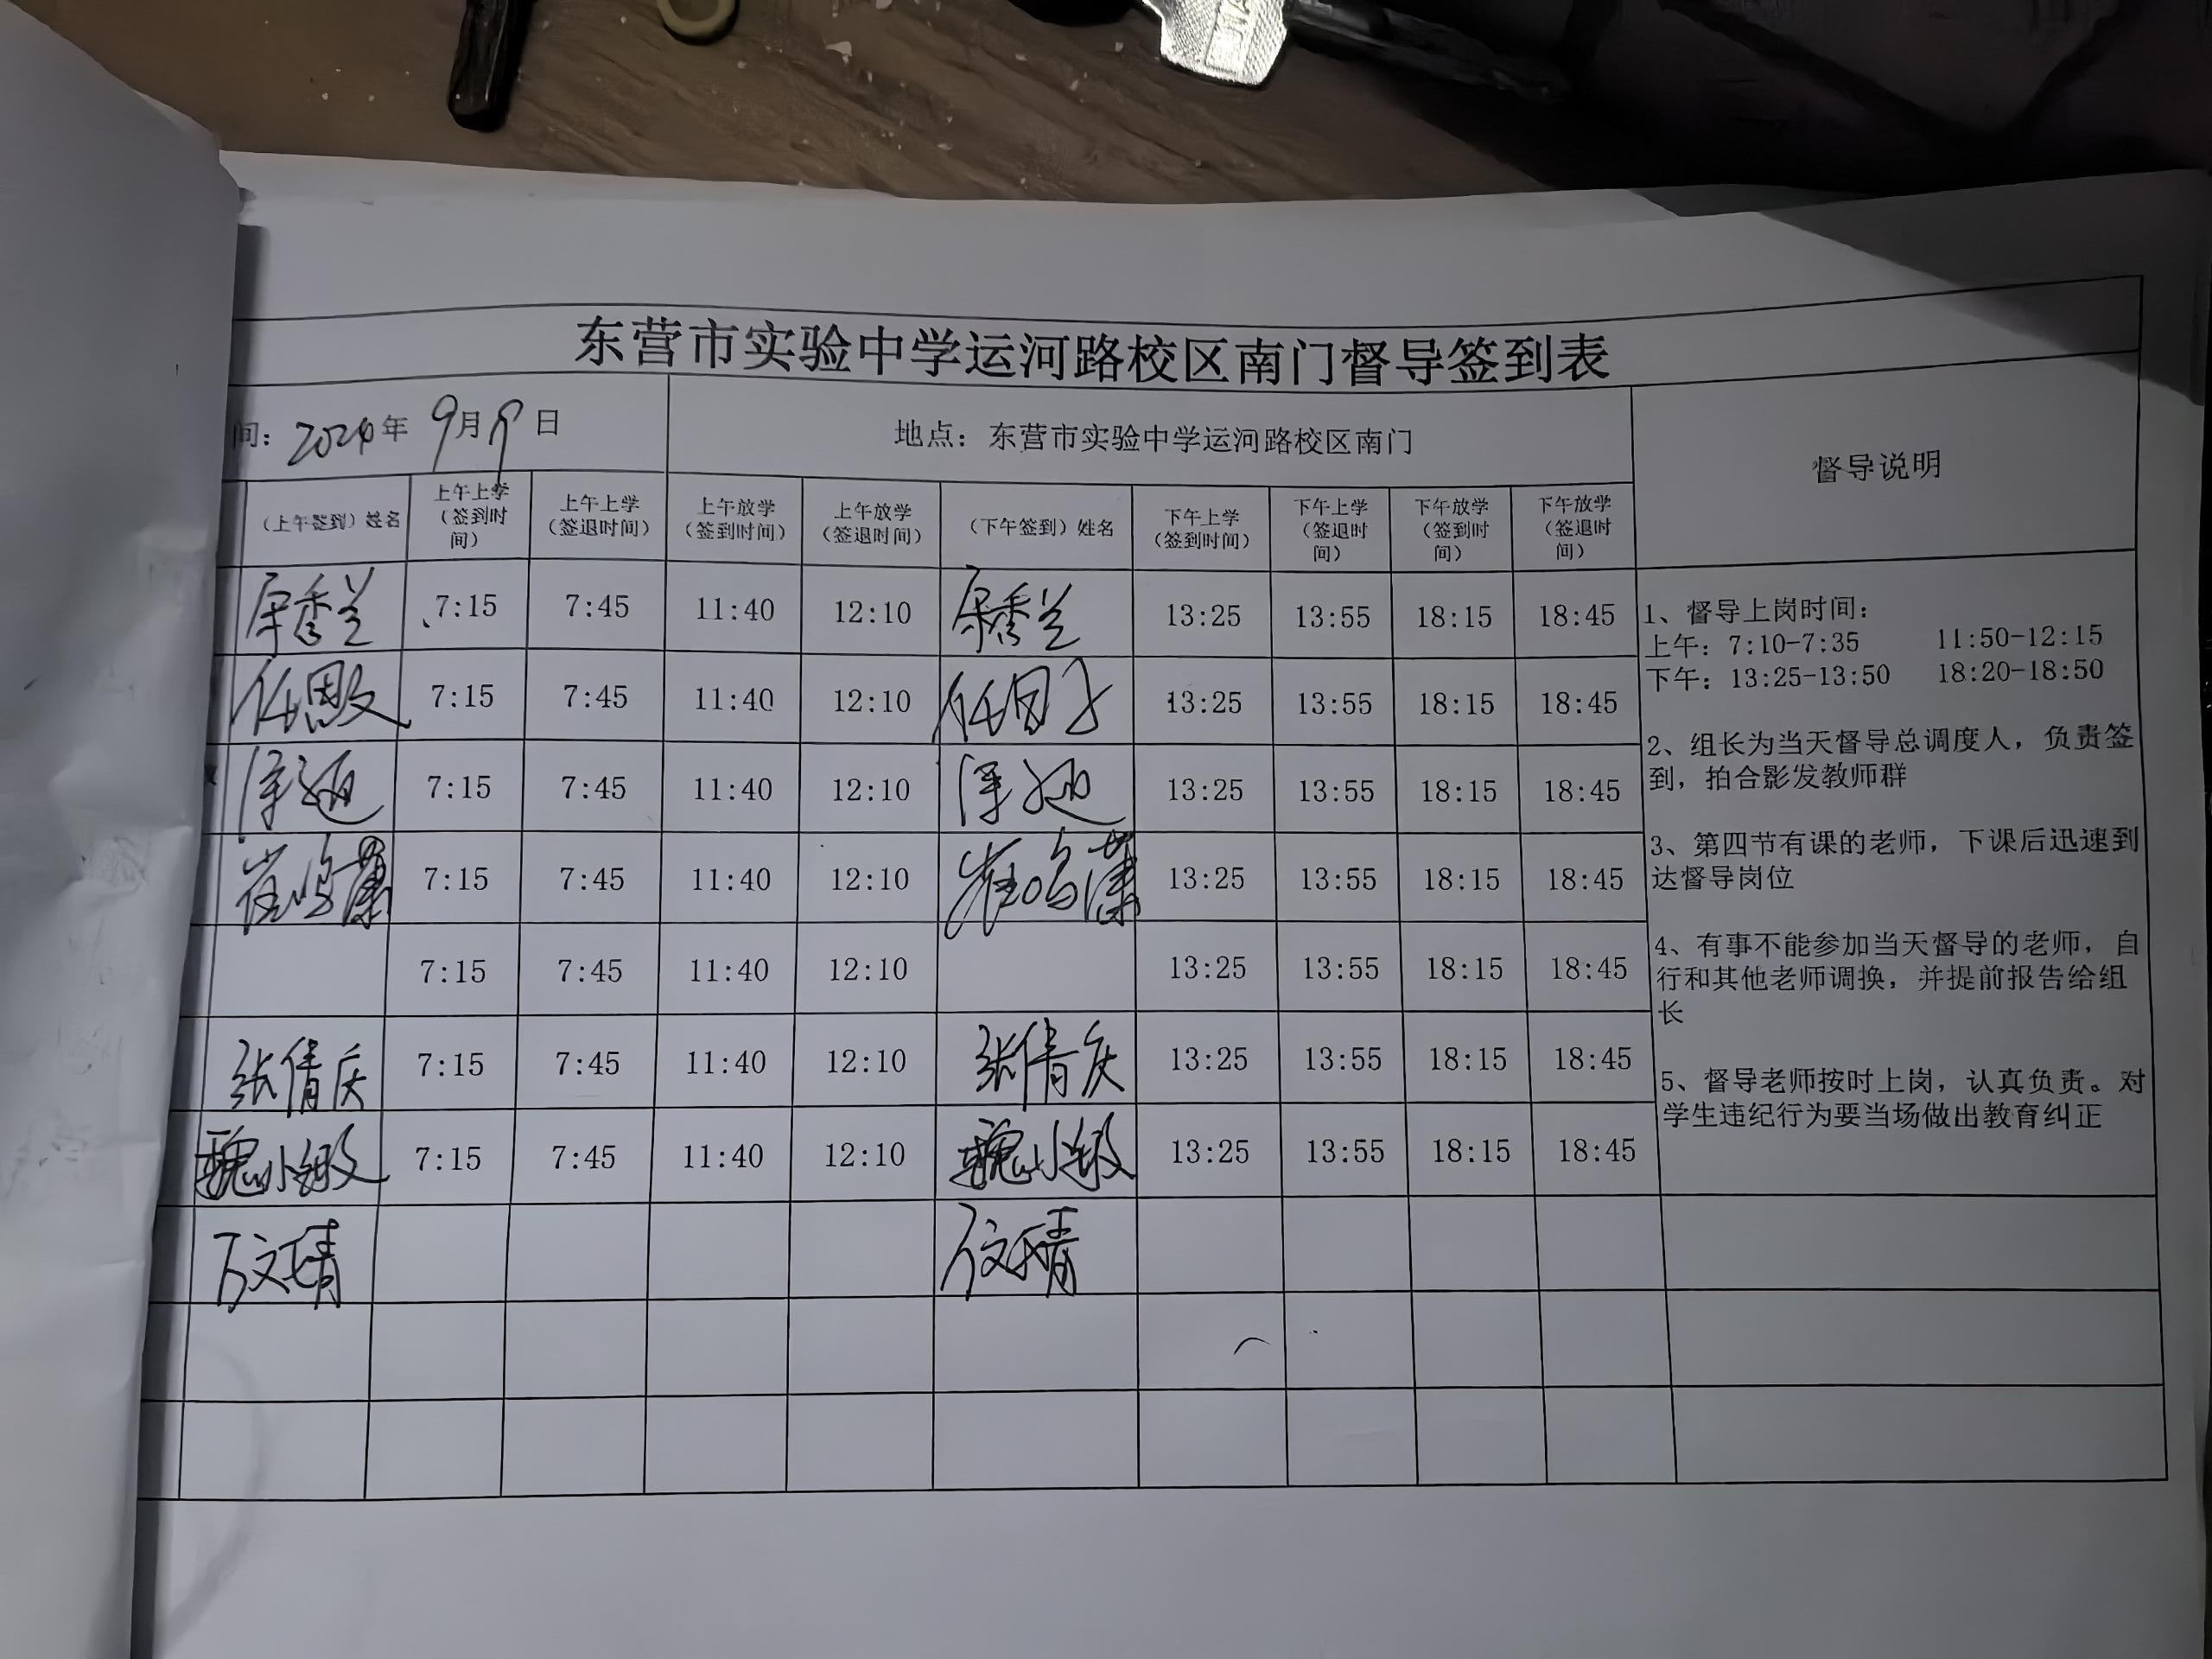 东营市实验中学运河路校区南门督导签到表
间：2024年 9月9日 地点：东营市实验中学运河路校区南门 督导说明
（上午签到）姓名 上午上学（签到时间） 上午上学（签退时间） 上午放学（签到时间） 上午放学（签退时间） （下午签到）姓名 下午上学（签到时间） 下午上学（签退时间） 下午放学（签到时间） 下午放学（签退时间）
7:15 7:45 11:40 12:10 13:25 13:55 18:15 18:45
7:15 7:45 11:40 12:10 13:25 13:55 18:15 18:45
7:15 7:45 11:40 12:10 13:25 13:55 18:15 18:45
崔鸣 7:15 7:45 11:40 12:10 崔鸣 13:25 13:55 18:15 18:45
7:15 7:45 11:40 12:10 13:25 13:55 18:15 18:45
张倩庆 7:15 7:45 11:40 12:10 张倩庆 13:25 13:55 18:15 18:45
魏小 7:15 7:45 11:40 12:10 魏小 13:25 13:55 18:15 18:45
万文婧 万文婧
1、督导上岗时间：
上午：7:10-7:35 11:50-12:15
下午：13:25-13:50 18:20-18:50
2、组长为当天督导总调度人，负责签
到，拍合影发教师群
3、第四节有课的老师，下课后迅速到
达督导岗位
4、有事不能参加当天督导的老师，自
行和其他老师调换，并提前报告给组
长
5、督导老师按时上岗，认真负责。对
学生违纪行为要当场做出教育纠正